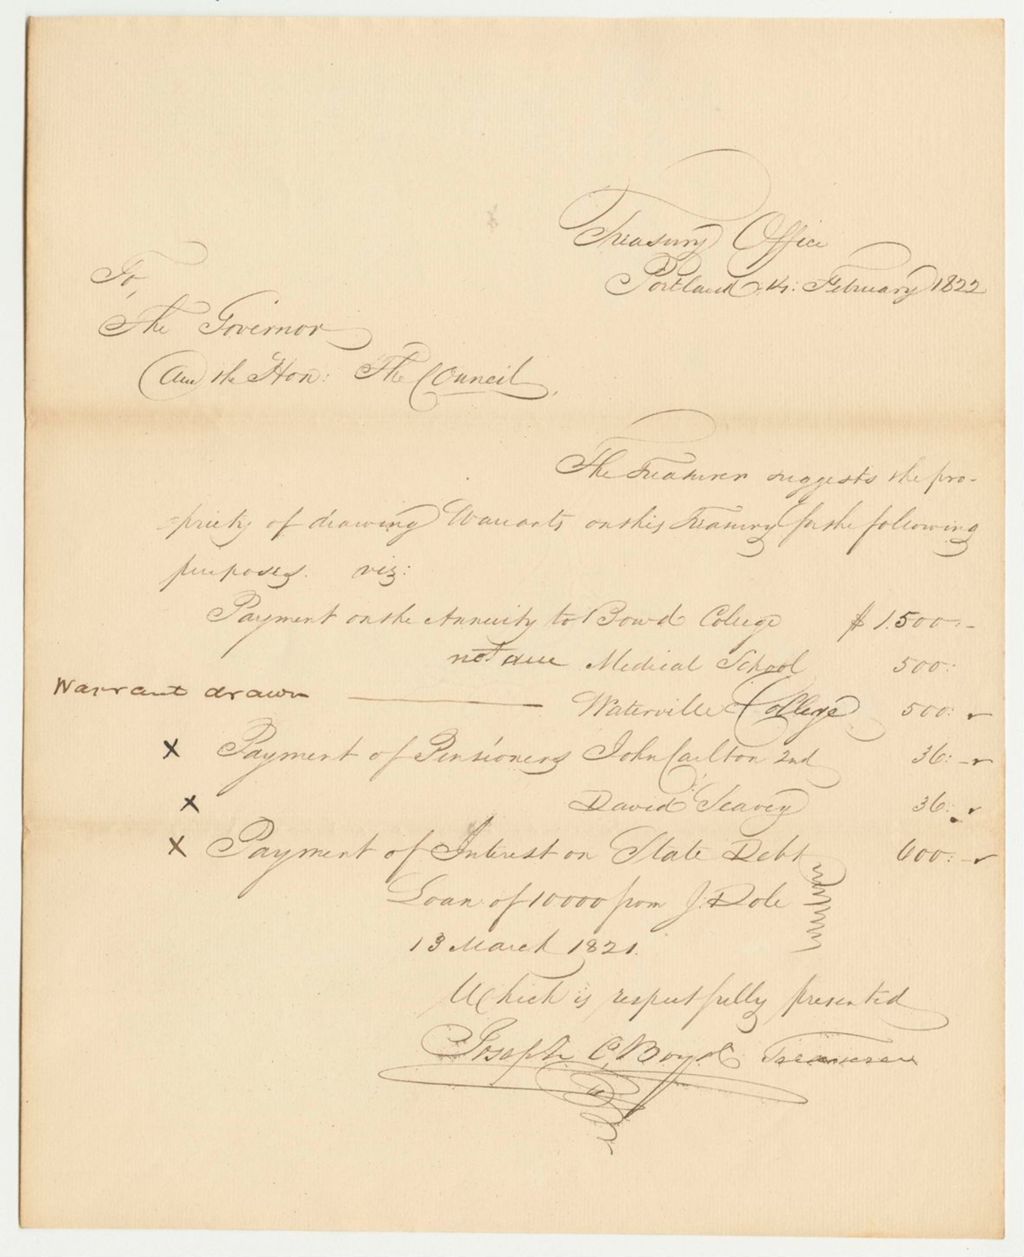 Treasury Office
Portland 14: February 1822
To,
The Governor
And the Hon: The Council,
The Treasurer suggests the pro-
-priety of drawing Warrants on this Treasury for the following
purposes. viz:
Payment on the Annuity to Bowd College $ 1.500.-
not due Medical School 500:
Warrant drawn Waterville College 500:
x Payment of Pensioners John Carlton 2nd 36:-
x David Seavey 36:
x Payment of Interest on State Debt 600:-
Loan of 10000 from J. Dole
13 March 1821.
Which is respectfully presented
Joseph C. Boyd Treasurer